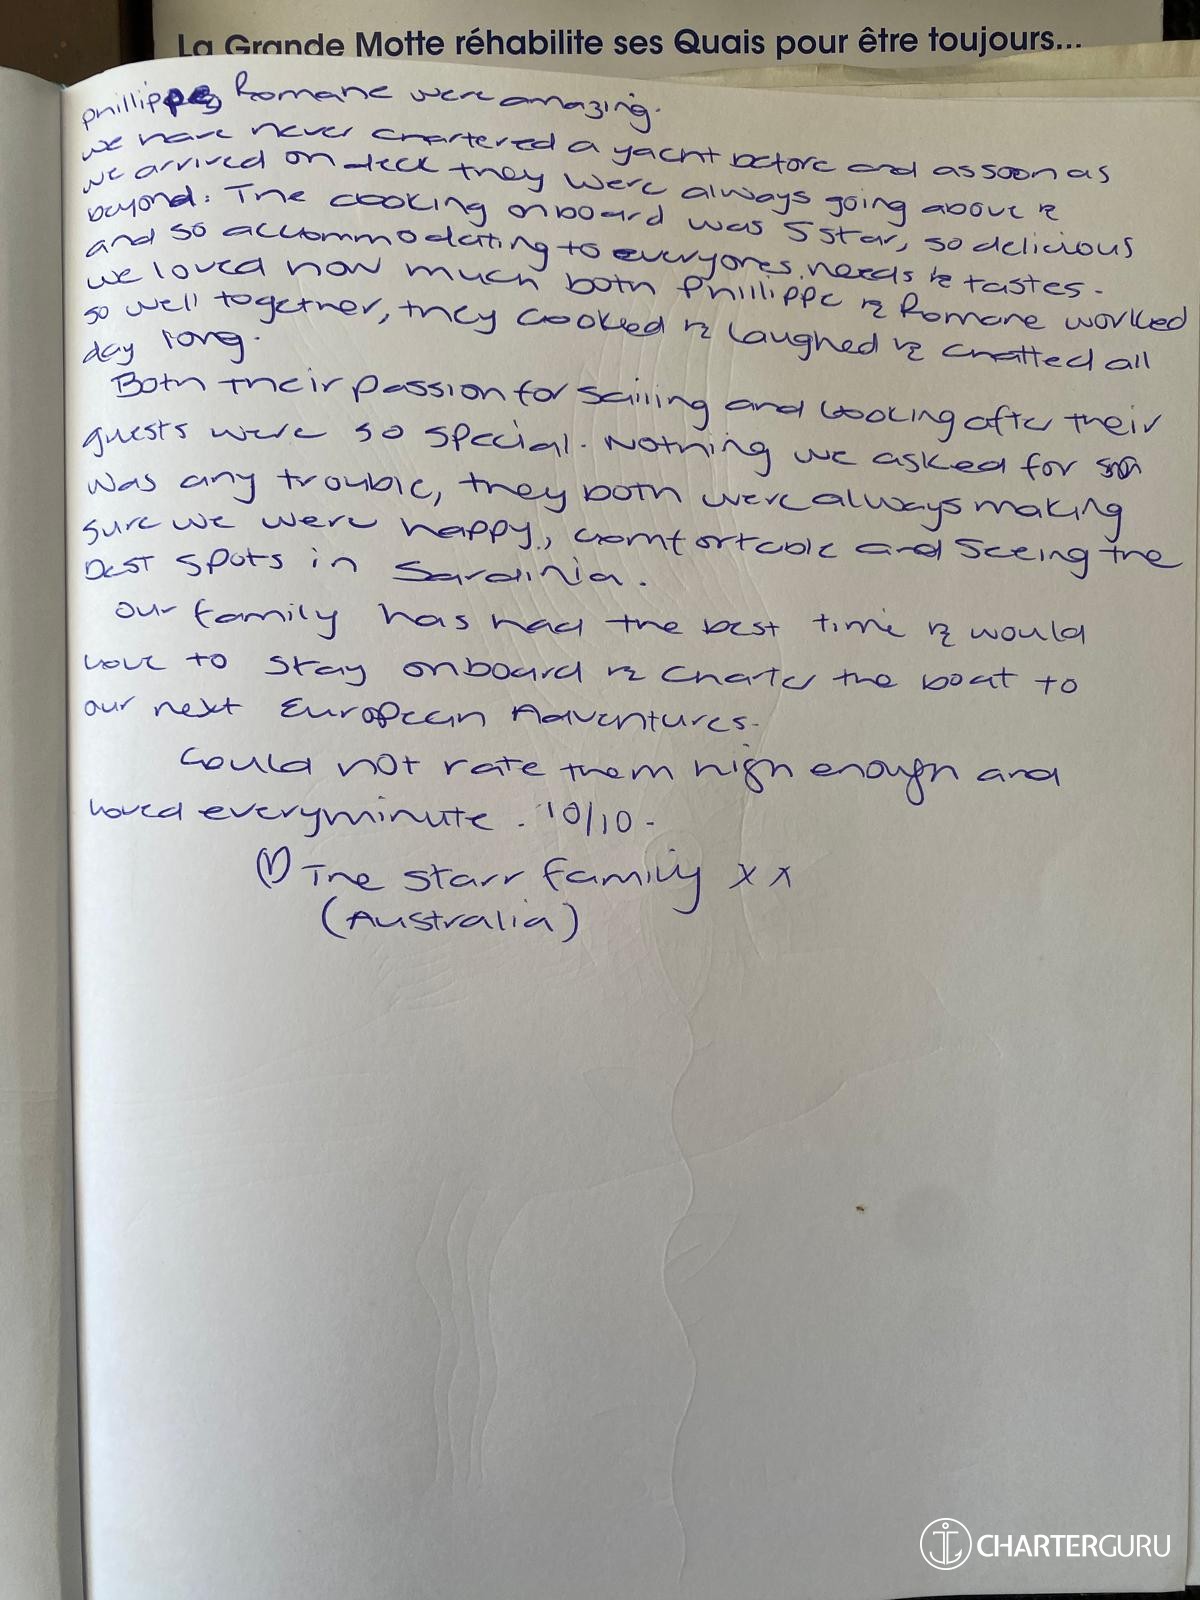 La Grande Motte réhabilite ses Quais pour être toujours...
Phillippe & Romane were amazing.
we have never chartered a yacht before and as soon as
we arrived on deck they were always going above &
beyond. The cooking onboard was 5 star, so delicious
and so accommodating to everyones needs & tastes.
we loved how much both Phillippe & Romane worked
so well together, they cooked & laughed & chatted all
day long.
Both their passion for sailing and looking after their
guests were so special. Nothing we asked for
was any trouble, they both were always making
sure we were happy, comfortable and seeing the
best spots in Sardinia.
our family has had the best time & would
love to stay onboard & charter the boat to
our next European Adventures.
Could not rate them high enough and
loved every minute. 10/10.
The Starr family x x
(Australia)
CHARTERGURU